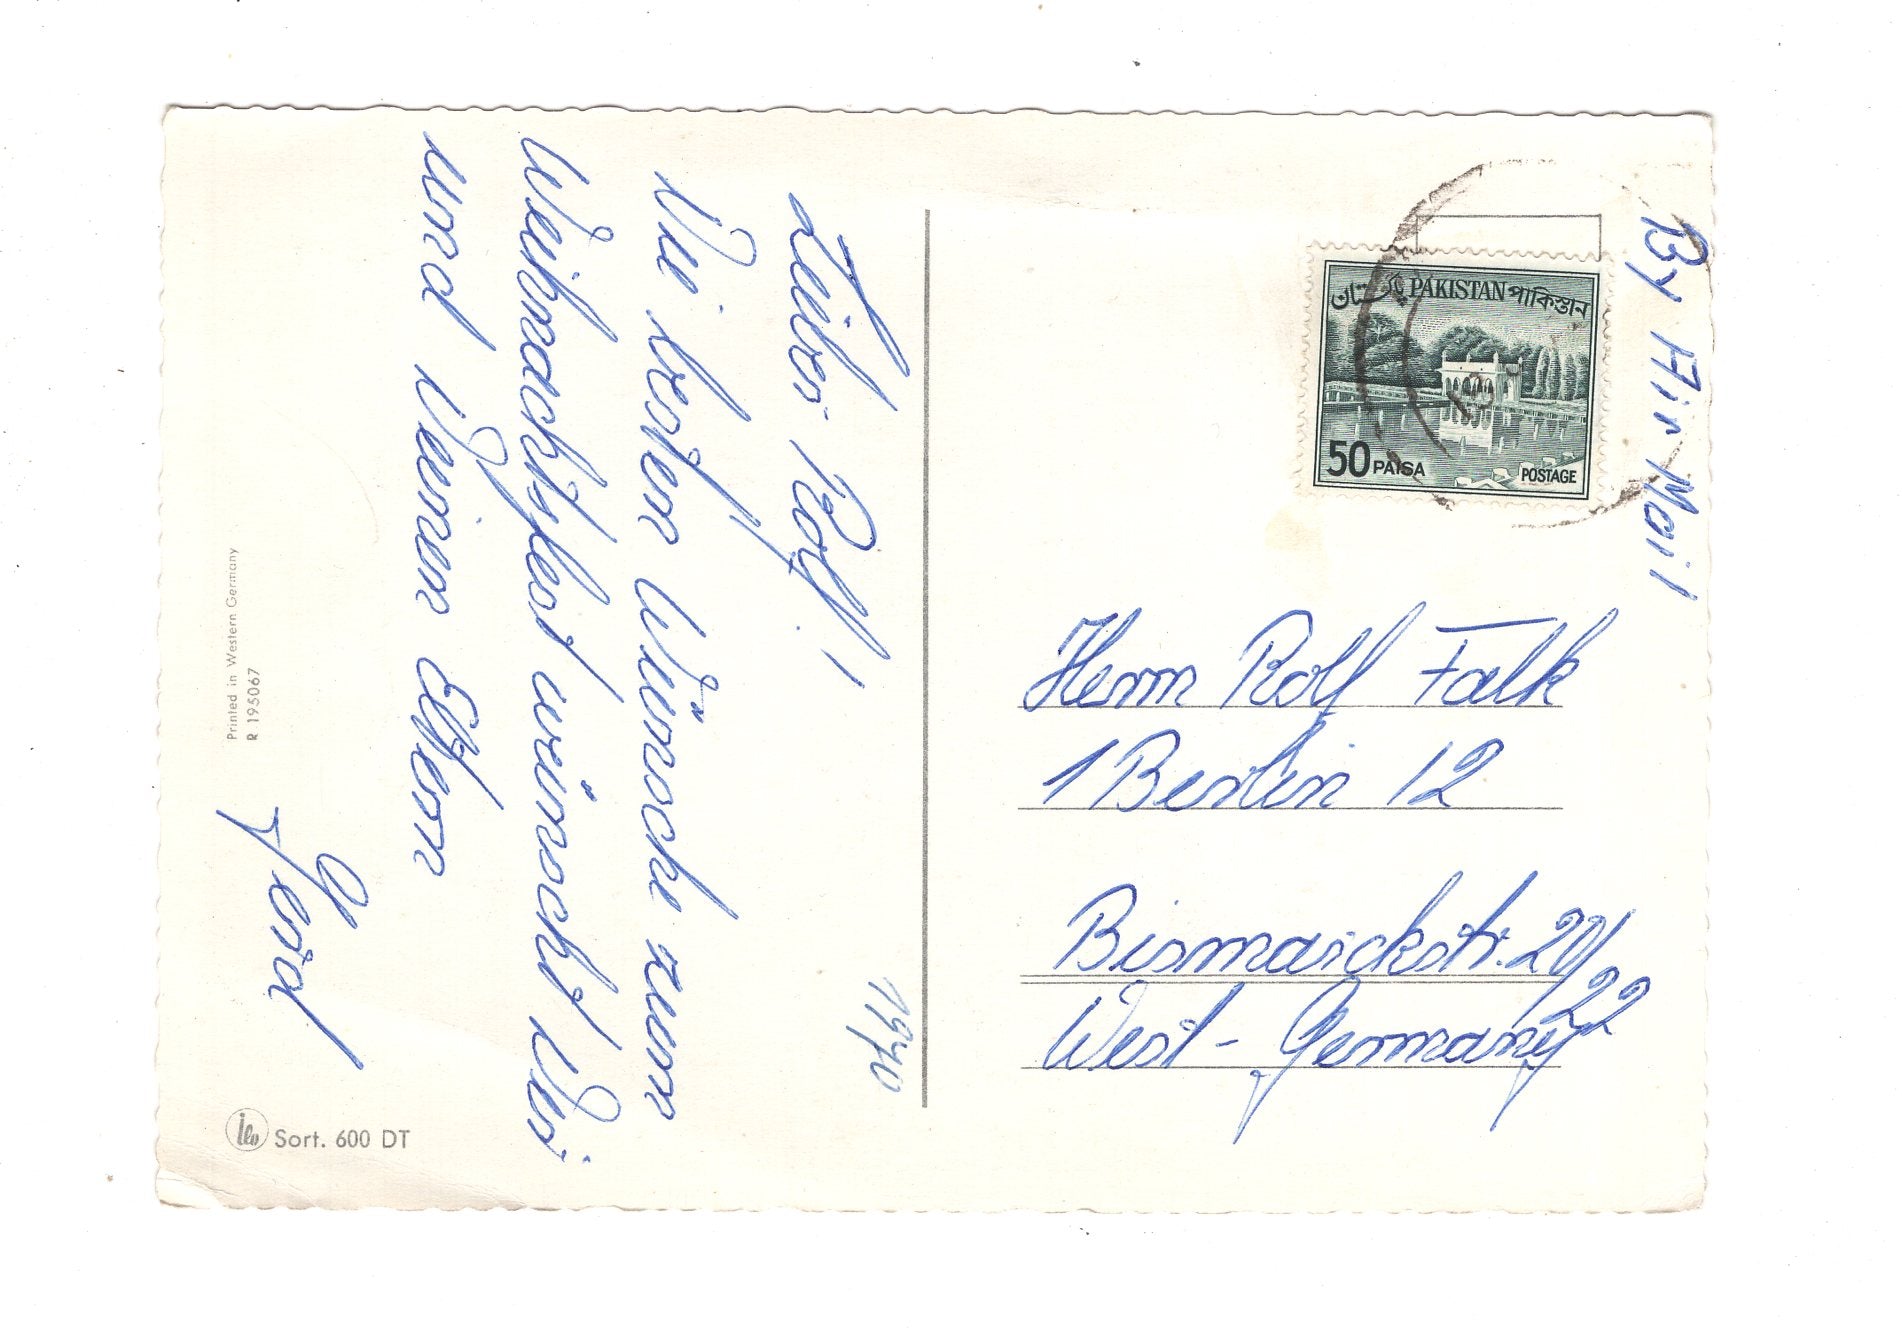 Lieber Rolf!
Die besten Wünsche zum
Weihnachtsfest wünscht Dir
und Deinen Eltern
Gerd
1970
Printed in Western Germany
R 195067
Sort. 600 DT
By Air Mail
پاکستان PAKISTAN পাকিস্তান
50 PAISA
POSTAGE
Herrn Rolf Falk
1 Berlin 12
Bismarckstr. 20/
22
West-Germany